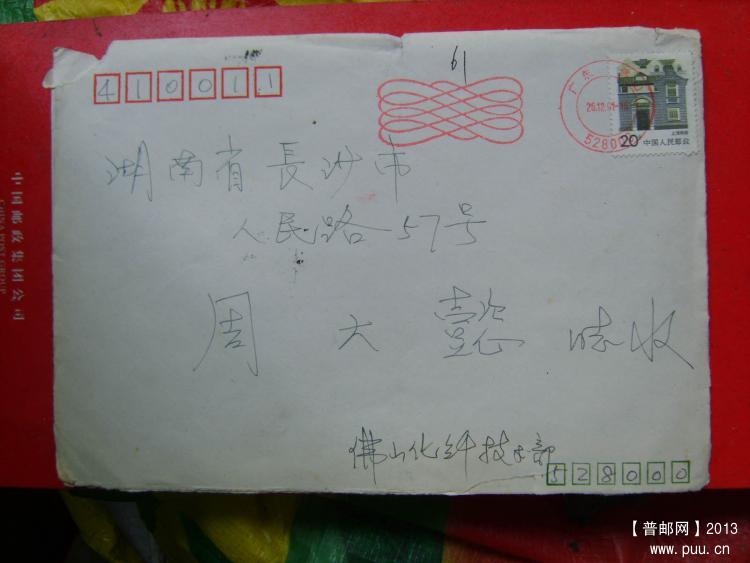 61
410011
广东
20.12.91
52800
上海民居
20 中国人民邮政
湖南省長沙市
人民路57号
周大懿 收
佛山化纤技术部
528000
中国邮政集团公司
CHINA POST GROUP
【普邮网】2013
www.puu.cn